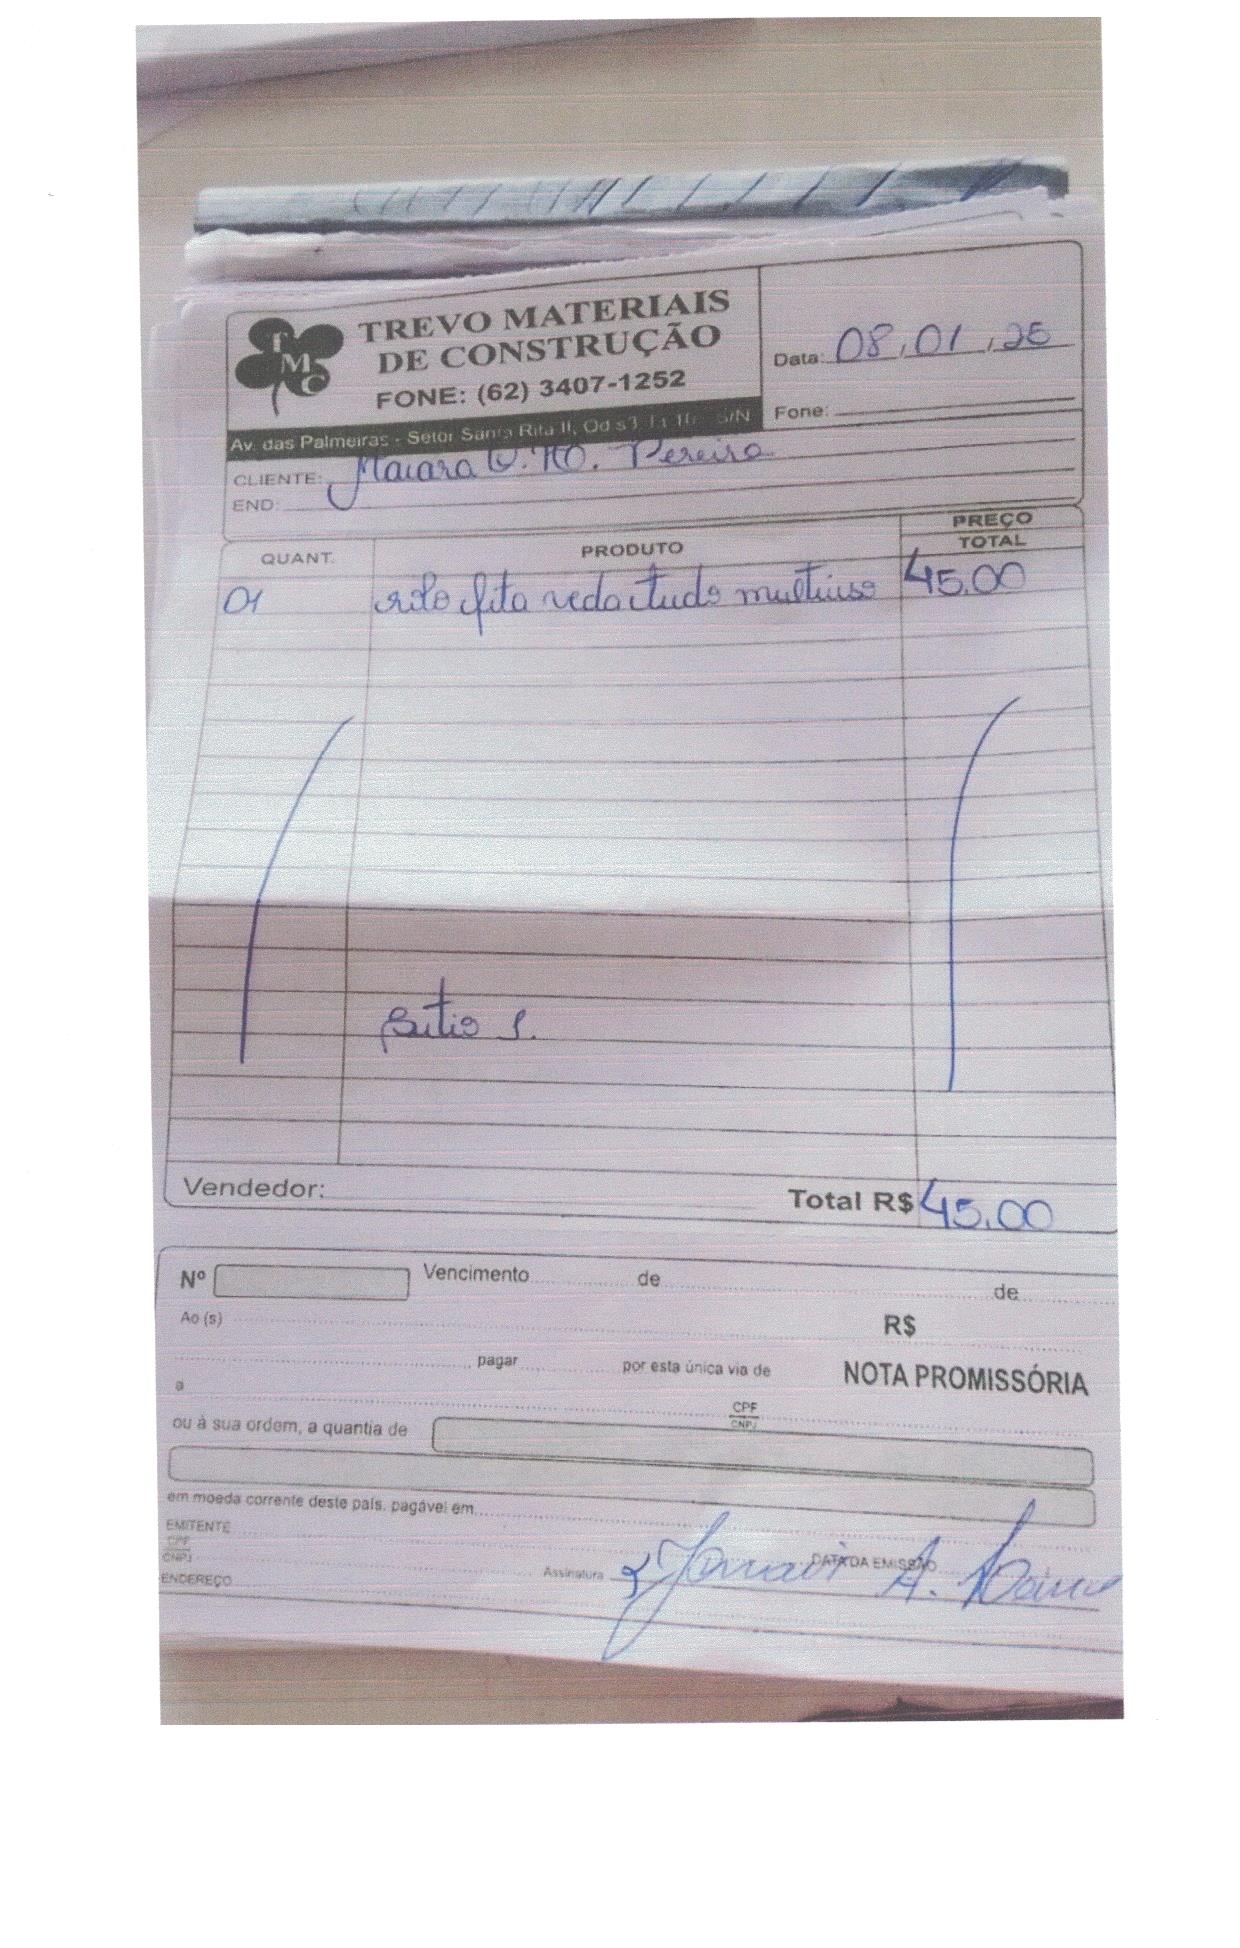 TMC
TREVO MATERIAIS
DE CONSTRUÇÃO
FONE: (62) 3407-1252
Av. das Palmeiras - Setor Santa Rita II, Qd S/N
Data: 08,01,
Fone:
CLIENTE: Maiara Pereira
END:
QUANT. PRODUTO PREÇO TOTAL
01 rolo fita veda tudo multiuso 45.00
Sitio S.
Vendedor: Total R$ 45.00
Nº Vencimento de de
Ao (s) R$
pagar por esta única via de NOTA PROMISSÓRIA
a CPF CNPJ
ou à sua ordem, a quantia de
em moeda corrente deste país, pagável em
EMITENTE
CPF CNPJ DATA DA EMISSÃO
ENDEREÇO Assinatura A.